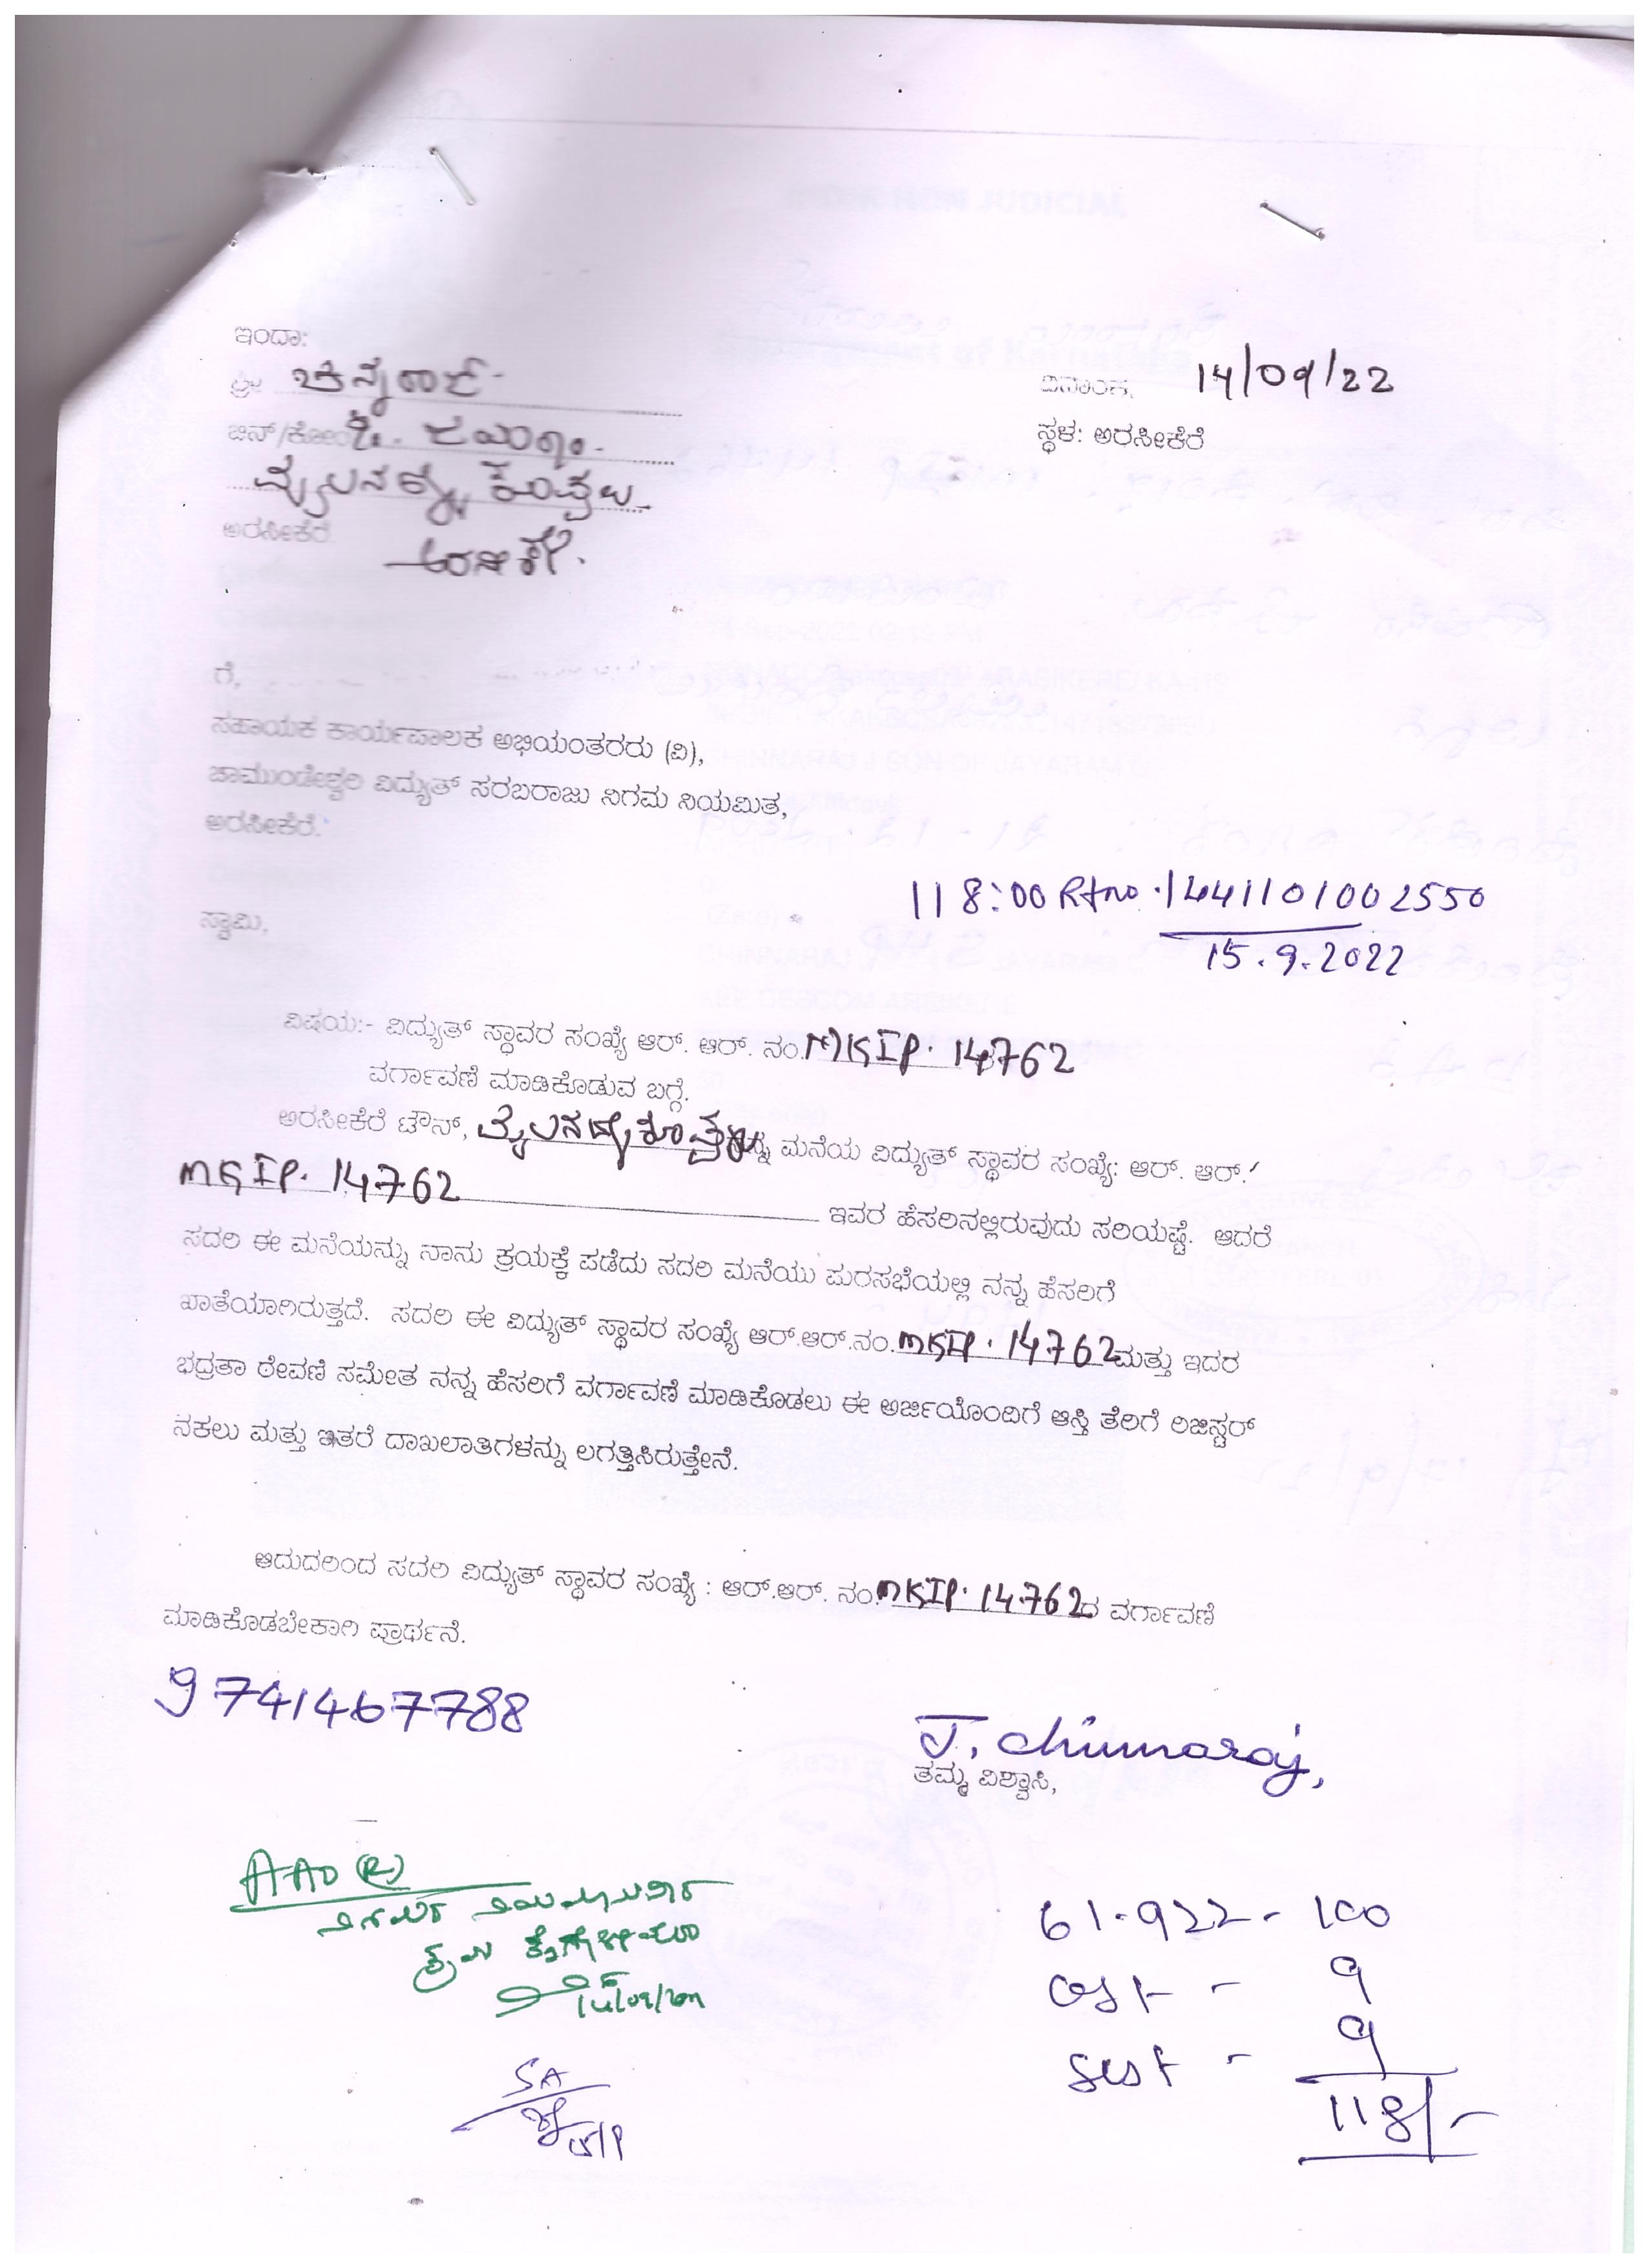 ಇಂದಾ:
ಶ್ರೀ ಚಿನ್ನರಾಜ್
ದಿನಾಂಕ: 14/09/22
ಬಿನ್/ಕೋಂ ಜಯರಾಂ.
ಸ್ಥಳ: ಅರಸೀಕೆರೆ
ಅರಸೀಕೆರೆ
ಅರಸೀಕೆರೆ.
ಗೆ,
ಸಹಾಯಕ ಕಾರ್ಯಪಾಲಕ ಅಭಿಯಂತರರು (ವಿ),
ಚಾಮುಂಡೇಶ್ವರಿ ವಿದ್ಯುತ್ ಸರಬರಾಜು ನಿಗಮ ನಿಯಮಿತ,
ಅರಸೀಕೆರೆ.
118:00 Rtno. 1441101002550
15.9.2022
ಸ್ವಾಮಿ,
ವಿಷಯ:- ವಿದ್ಯುತ್ ಸ್ಥಾವರ ಸಂಖ್ಯೆ ಆರ್. ಆರ್. ನಂ. MKIP. 14762
ವರ್ಗಾವಣೆ ಮಾಡಿಕೊಡುವ ಬಗ್ಗೆ.
ಅರಸೀಕೆರೆ ಟೌನ್, ಮನೆಯ ವಿದ್ಯುತ್ ಸ್ಥಾವರ ಸಂಖ್ಯೆ: ಆರ್. ಆರ್.
MKIP. 14762 ಇವರ ಹೆಸರಿನಲ್ಲಿರುವುದು ಸರಿಯಷ್ಟೆ. ಆದರೆ
ಸದರಿ ಈ ಮನೆಯನ್ನು ನಾನು ಕ್ರಯಕ್ಕೆ ಪಡೆದು ಸದರಿ ಮನೆಯು ಪುರಸಭೆಯಲ್ಲಿ ನನ್ನ ಹೆಸರಿಗೆ
ಖಾತೆಯಾಗಿರುತ್ತದೆ. ಸದರಿ ಈ ವಿದ್ಯುತ್ ಸ್ಥಾವರ ಸಂಖ್ಯೆ ಆರ್.ಆರ್.ನಂ. MKIP. 14762 ಮತ್ತು ಇದರ
ಭದ್ರತಾ ಠೇವಣಿ ಸಮೇತ ನನ್ನ ಹೆಸರಿಗೆ ವರ್ಗಾವಣೆ ಮಾಡಿಕೊಡಲು ಈ ಅರ್ಜಿಯೊಂದಿಗೆ ಆಸ್ತಿ ತೆರಿಗೆ ರಿಜಿಸ್ಟರ್
ನಕಲು ಮತ್ತು ಇತರೆ ದಾಖಲಾತಿಗಳನ್ನು ಲಗತ್ತಿಸಿರುತ್ತೇನೆ.
ಆದುದರಿಂದ ಸದರಿ ವಿದ್ಯುತ್ ಸ್ಥಾವರ ಸಂಖ್ಯೆ : ಆರ್.ಆರ್. ನಂ. MKIP. 14762 ದ ವರ್ಗಾವಣೆ
ಮಾಡಿಕೊಡಬೇಕಾಗಿ ಪ್ರಾರ್ಥನೆ.
9741467788
J. Chinnaraj,
ತಮ್ಮ ವಿಶ್ವಾಸಿ,
AAO (R)
61.922 - 100
CGST - 9
SGST - 9
118/-
SA